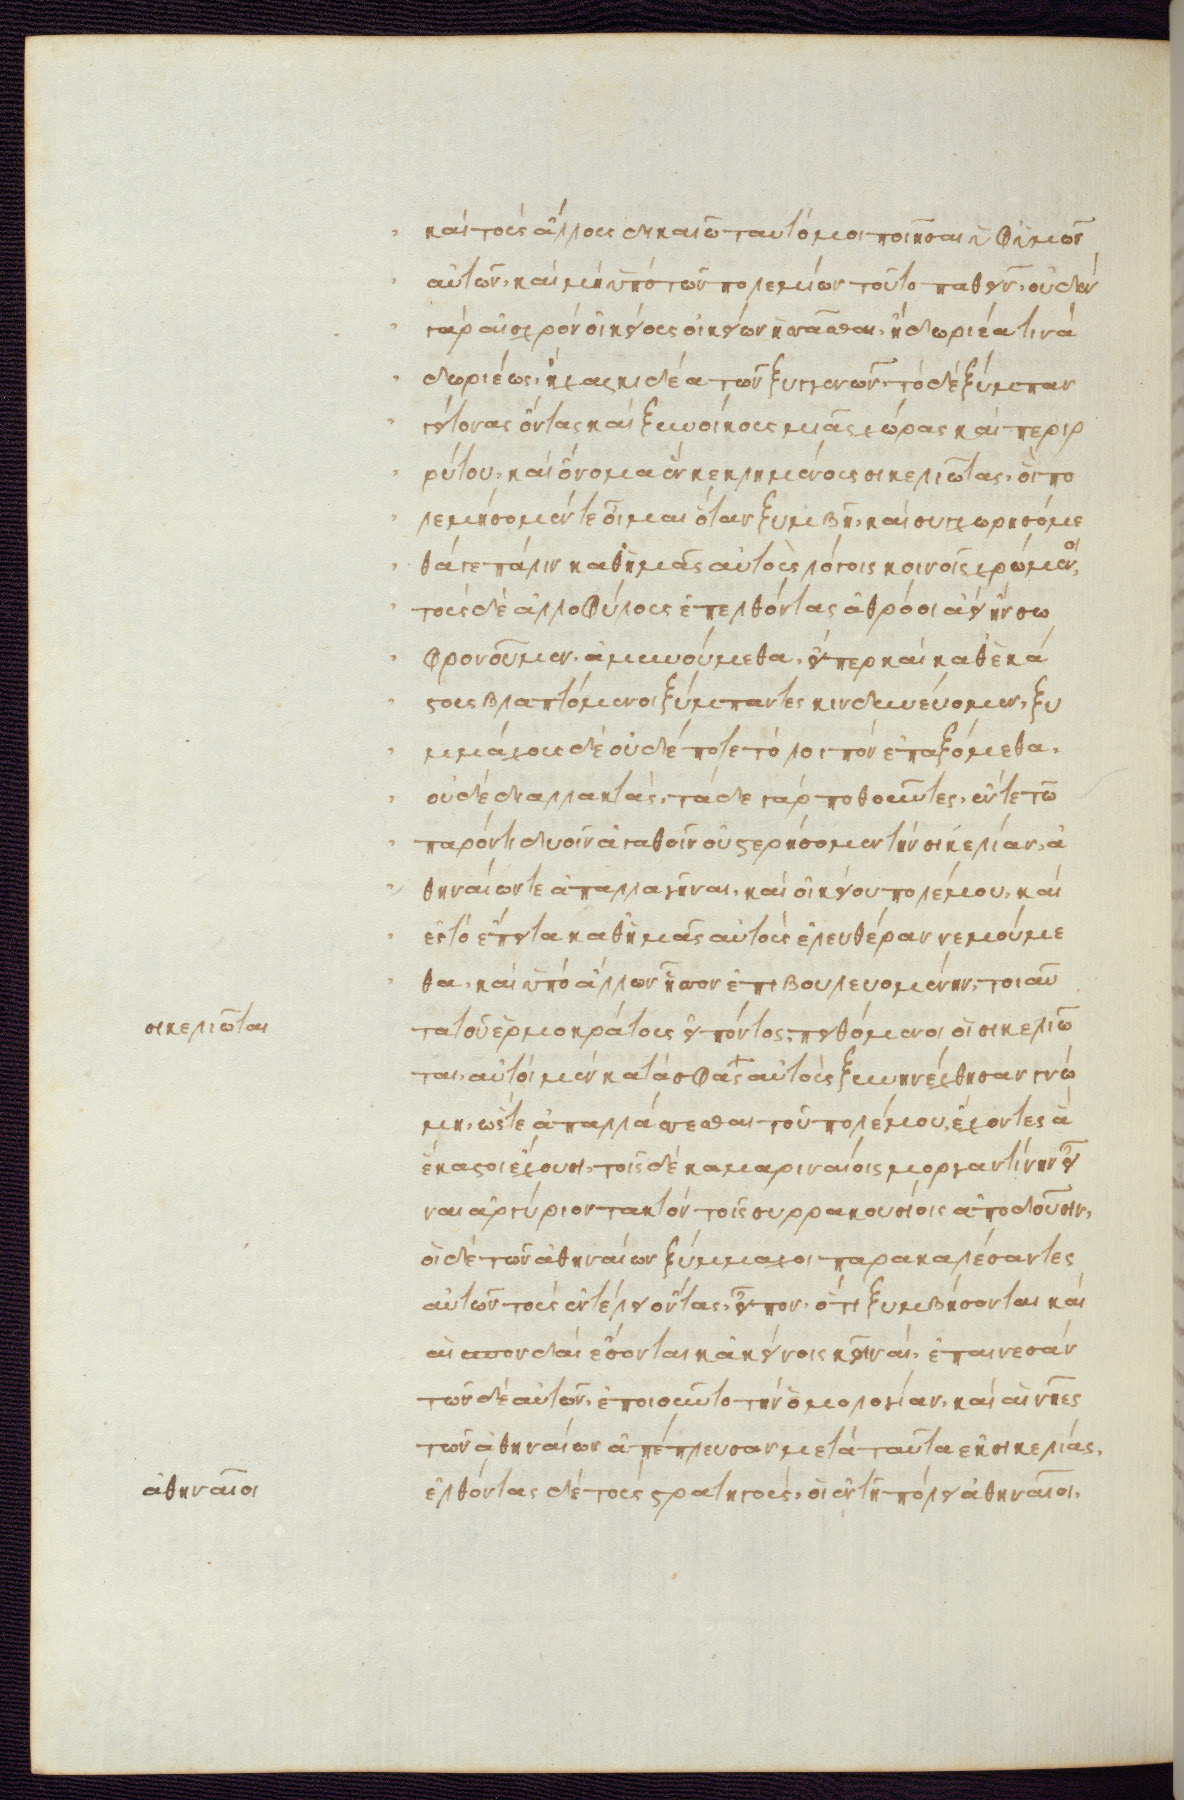 καὶ τοὺς ἄλλους δικαιῶ ταυτό μοι ποιῆσαι ὑφ' ἡμῶν
αὐτῶν, καὶ μὴ ὑπὸ τῶν πολεμίων τοῦτο παθεῖν, οὐδὲν
γὰρ αἰσχρὸν οἰκείους οἰκείων ἡσσᾶσθαι, ἢ δωριέα τινὰ
δωριέως, ἢ χαλκιδέα τῶν ξυγγενῶν, τὸ δὲ ξύμπαν
γείτονας ὄντας καὶ ξυνοίκους μιᾶς χώρας καὶ περιρ
ρύτου, καὶ ὄνομα ἓν κεκλημένους σικελιώτας, οἳ πο
λεμήσομέν τε οἶμαι ὅταν ξυμβῇ, καὶ συγχωρησόμε
θά γε πάλιν καθ' ἡμᾶς αὐτοὺς λόγοις κοινοῖς χρώμενοι,
τοὺς δὲ ἀλλοφύλους ἐπελθόντας ἀθρόοι ἀεὶ ἢν σω
φρονοῦμεν, ἀμυνούμεθα, εἴπερ καὶ καθ' ἑκά
στους βλαπτόμενοι ξύμπαντες κινδυνεύομεν, ξυ
μμάχους δὲ οὐδέποτε τὸ λοιπὸν ἐπαξόμεθα,
οὐδὲ διαλλακτάς, τάδε γὰρ ποιοῦντες, ἔν τε τῷ
παρόντι δυοῖν ἀγαθοῖν οὐ στερήσομεν τὴν σικελίαν, ἀ
θηναίων τε ἀπαλλαγῆναι, καὶ οἰκείου πολέμου, καὶ
ἐς τὸ ἔπειτα καθ' ἡμᾶς αὐτοὺς ἐλευθέραν νεμούμε
θα, καὶ ὑπὸ ἄλλων ἧσσον ἐπιβουλευομένην, τοιαῦ
σικελιῶται
τα τοῦ ἑρμοκράτους εἰπόντος, πειθόμενοι οἱ σικελιῶ
ται, αὐτοὶ μὲν κατὰ σφᾶς αὐτοὺς ξυνηνέχθησαν γνώ
μῃ, ὥστε ἀπαλλάσσεσθαι τοῦ πολέμου, ἔχοντες ἃ
ἕκαστοι ἔχουσι, τοῖς δὲ καμαριναίοις μοργαντίνην εἶ
ναι ἀργύριον τακτὸν τοῖς συρρακουσίοις ἀποδοῦσιν,
οἱ δὲ τῶν ἀθηναίων ξύμμαχοι παρακαλέσαντες
αὐτῶν τοὺς ἐν τέλει ὄντας, εἶπον, ὅτι ξυμβήσονται καὶ
αἱ σπονδαὶ ἔσονται κἀκείνοις κοιναί, ἐπαινεσάν
των δὲ αὐτῶν, ἐποιοῦντο τὴν ὁμολογίαν, καὶ αἱ νῆες
τῶν ἀθηναίων ἀπέπλευσαν μετὰ ταῦτα ἐκ σικελίας,
ἀθηναῖοι
ἐλθόντας δὲ τοὺς στρατηγούς, οἱ ἐν τῇ πόλει ἀθηναῖοι,